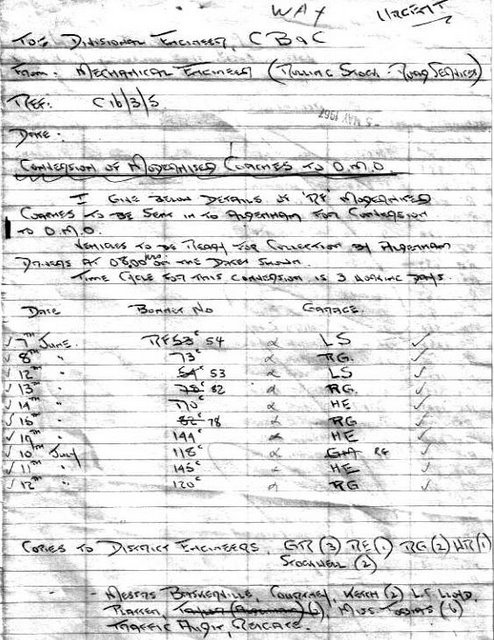 WAY URGENT
TO:- DIVISIONAL ENGINEER, CB&C
FROM:- MECHANICAL ENGINEER (ROLLING STOCK - ROAD SERVICES)
REF: C16/3/5
5 MAY 1967
DATE:
CONVERSION OF MODERNISED COACHES TO O.M.O.
I GIVE BELOW DETAILS OF 'RF' MODERNISED
COACHES TO BE SENT IN TO ALDENHAM FOR CONVERSION
TO O.M.O.
VEHICLES TO BE READY FOR COLLECTION BY ALDENHAM
DRIVERS AT 08.00 HRS ON THE DATES SHOWN.
TIME CYCLE FOR THIS CONVERSION IS 3 WORKING DAYS.
DATE BONNET NO GARAGE
✓ 7TH JUNE. RF 53c 54 LS ✓
✓ 8TH " 73c RG. ✓
✓ 12TH " 54c 53 LS ✓
✓ 13TH " 78c 82 RG. ✓
✓ 14TH " 170c HE ✓
✓ 15TH " 82c 78 RG ✓
✓ 19TH " 144c HE ✓
✓ 10TH JULY 118c GR RE ✓
✓ 11TH " 145c HE ✓
✓ 12TH " 120c RG ✓
COPIES TO DISTRICT ENGINEERS, GR (3) RE (1) RG (2) HR (1)
STOCKWELL (2)
- MESSRS BASKERVILLE, COURTNEY, KEECH (2) LLOYD,
(6), MISS (6)
TRAFFIC AUDIT, REIGATE.